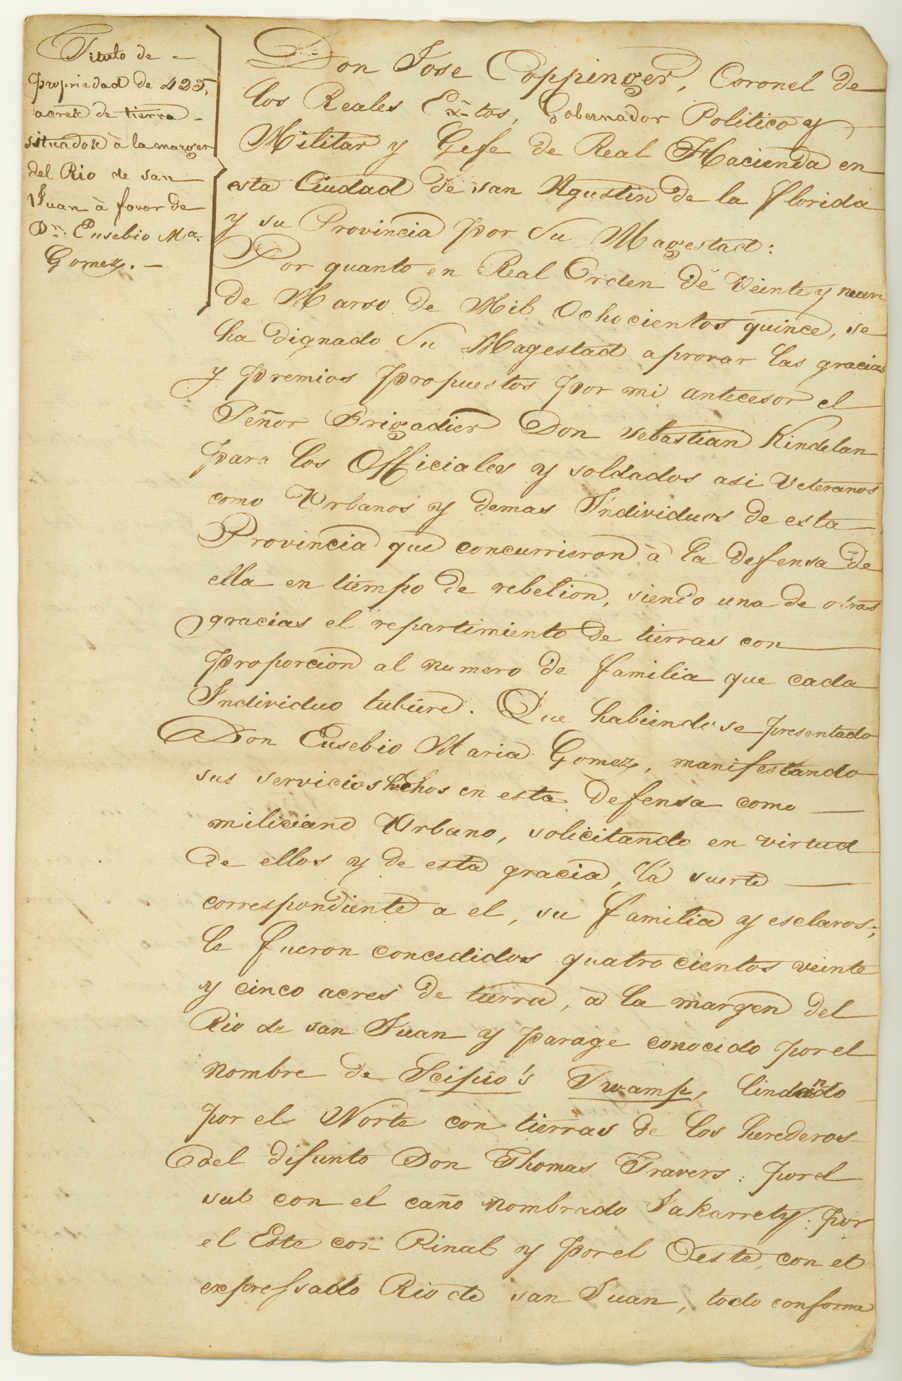 Titulo de -
propriedad de 425,
acres de tierra -
situados à la margen
del Rio de san
Juan à favor de
Dn: Eusebio Ma.
Gomez. -
Don Jose Coppinger, Coronel de
los Reales Extos, Gobernador Politico y
Militar y Gefe de Real Hacienda en
esta Ciudad de san Agustin de la Florida
y su Provincia por Su Magestad:
Por quanto en Real Orden de Veinte y nueve
de Marso de Mil Ochocientos quince, se
ha dignado Su Magestad aprovar las gracias
y premios propuestos por mi antecesor el
Señor Brigadier Don Sebastian Kindelan
para los Officiales y soldados asi Veteranos
como Urbanos y demas Individuos de esta
Provincia que concurrieron à la defensa de
ella en tiempo de rebelion, siendo una de otras
gracias el repartimiento de tierras con
proporcion al numero de familia que cada
Individuo tubiere. Que habiendose presentado
Don Eusebio Maria Gomez, manifestando
sus servicios hechos en esta defensa como
miliciano Urbano, solicitando en virtud
de ellos y de esta gracia, la suerte
correspondiente a el, su familia y esclavos;
le fueron concedidos quatro cientos veinte
y cinco acres de tierra, à la margen del
Rio de san Juan y parage conocido por el
nombre de Scipio's Swamp, lindando
por el Norte con tierras de los herederos
del difunto Don Thomas Travers: por el
sub con el caño nombrado Jakarrety: por
el Este con Pinal y por el Oeste, con el
expressado Rio de san Juan, todo conforme